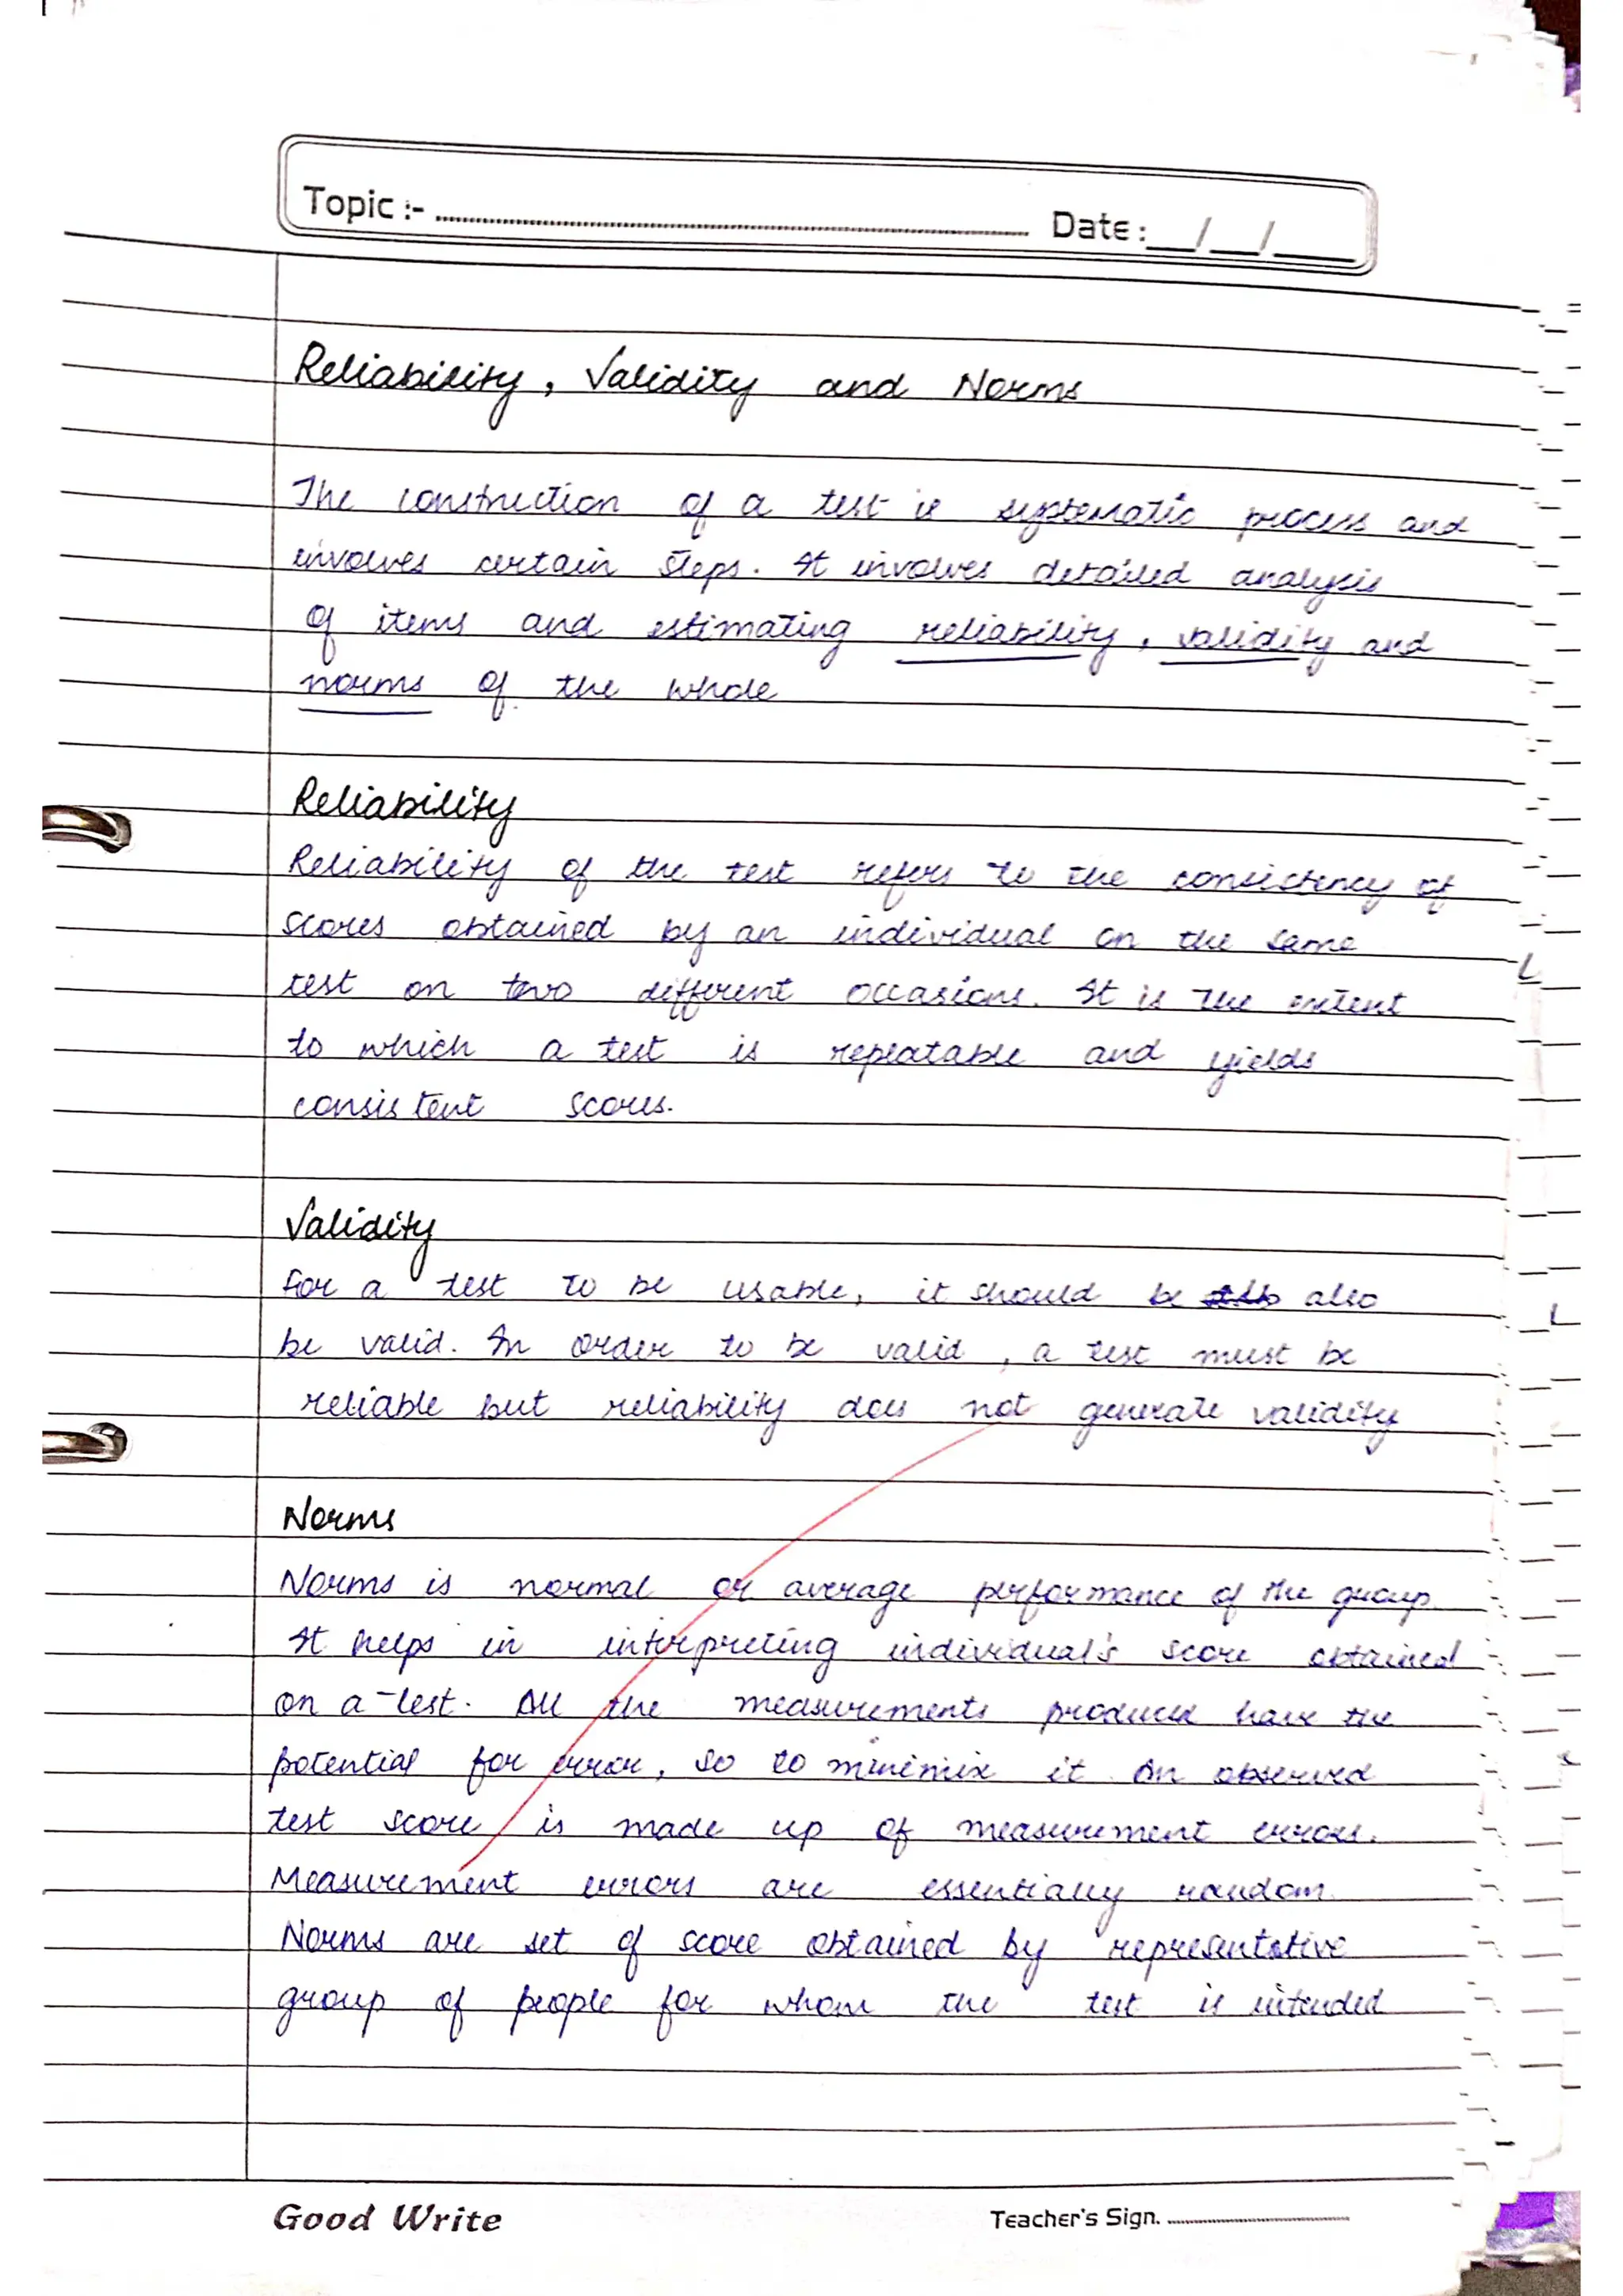 Topic :- Date : __/__/__
Reliability, Validity and Norms
The construction of a test is systematic process and
involves certain steps. It involves detailed analysis
of items and estimating reliability, validity and
norms of the whole
Reliability
Reliability of the test refers to the consistency of
scores obtained by an individual on the same
test on two different occasions. It is the extent
to which a test is repeatable and yields
consistent scores.
Validity
For a test to be usable, it should be also
be valid. In order to be valid, a test must be
reliable but reliability does not generate validity
Norms
Norms is normal or average performance of the group.
It helps in interpreting individual's score obtained
on a test. All the measurements produced have the
potential for error, so to minimix it. An observed
test score is made up of measurement errors.
Measurement errors are essentially random.
Norms are set of score obtained by representative
group of people for whom the test is intended
Good Write Teacher's Sign.